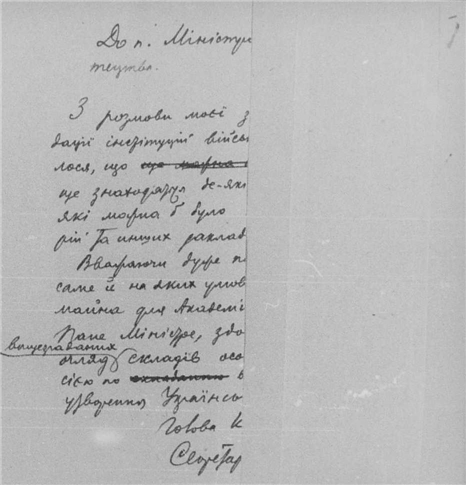 До п. Міністра
тецтва.
З розмови моєї з
дації інституцій війсь
лося, що ще можна
ще знаходяться де-які
які можна б було
рій та инших заклад
Вважаючи дуже п
саме й на яких умов
майна для Академі
Пане Міністре, здо
вищезгаданих
огляд складів осо
сією по
утворення Українсь
Голова К
Секретар